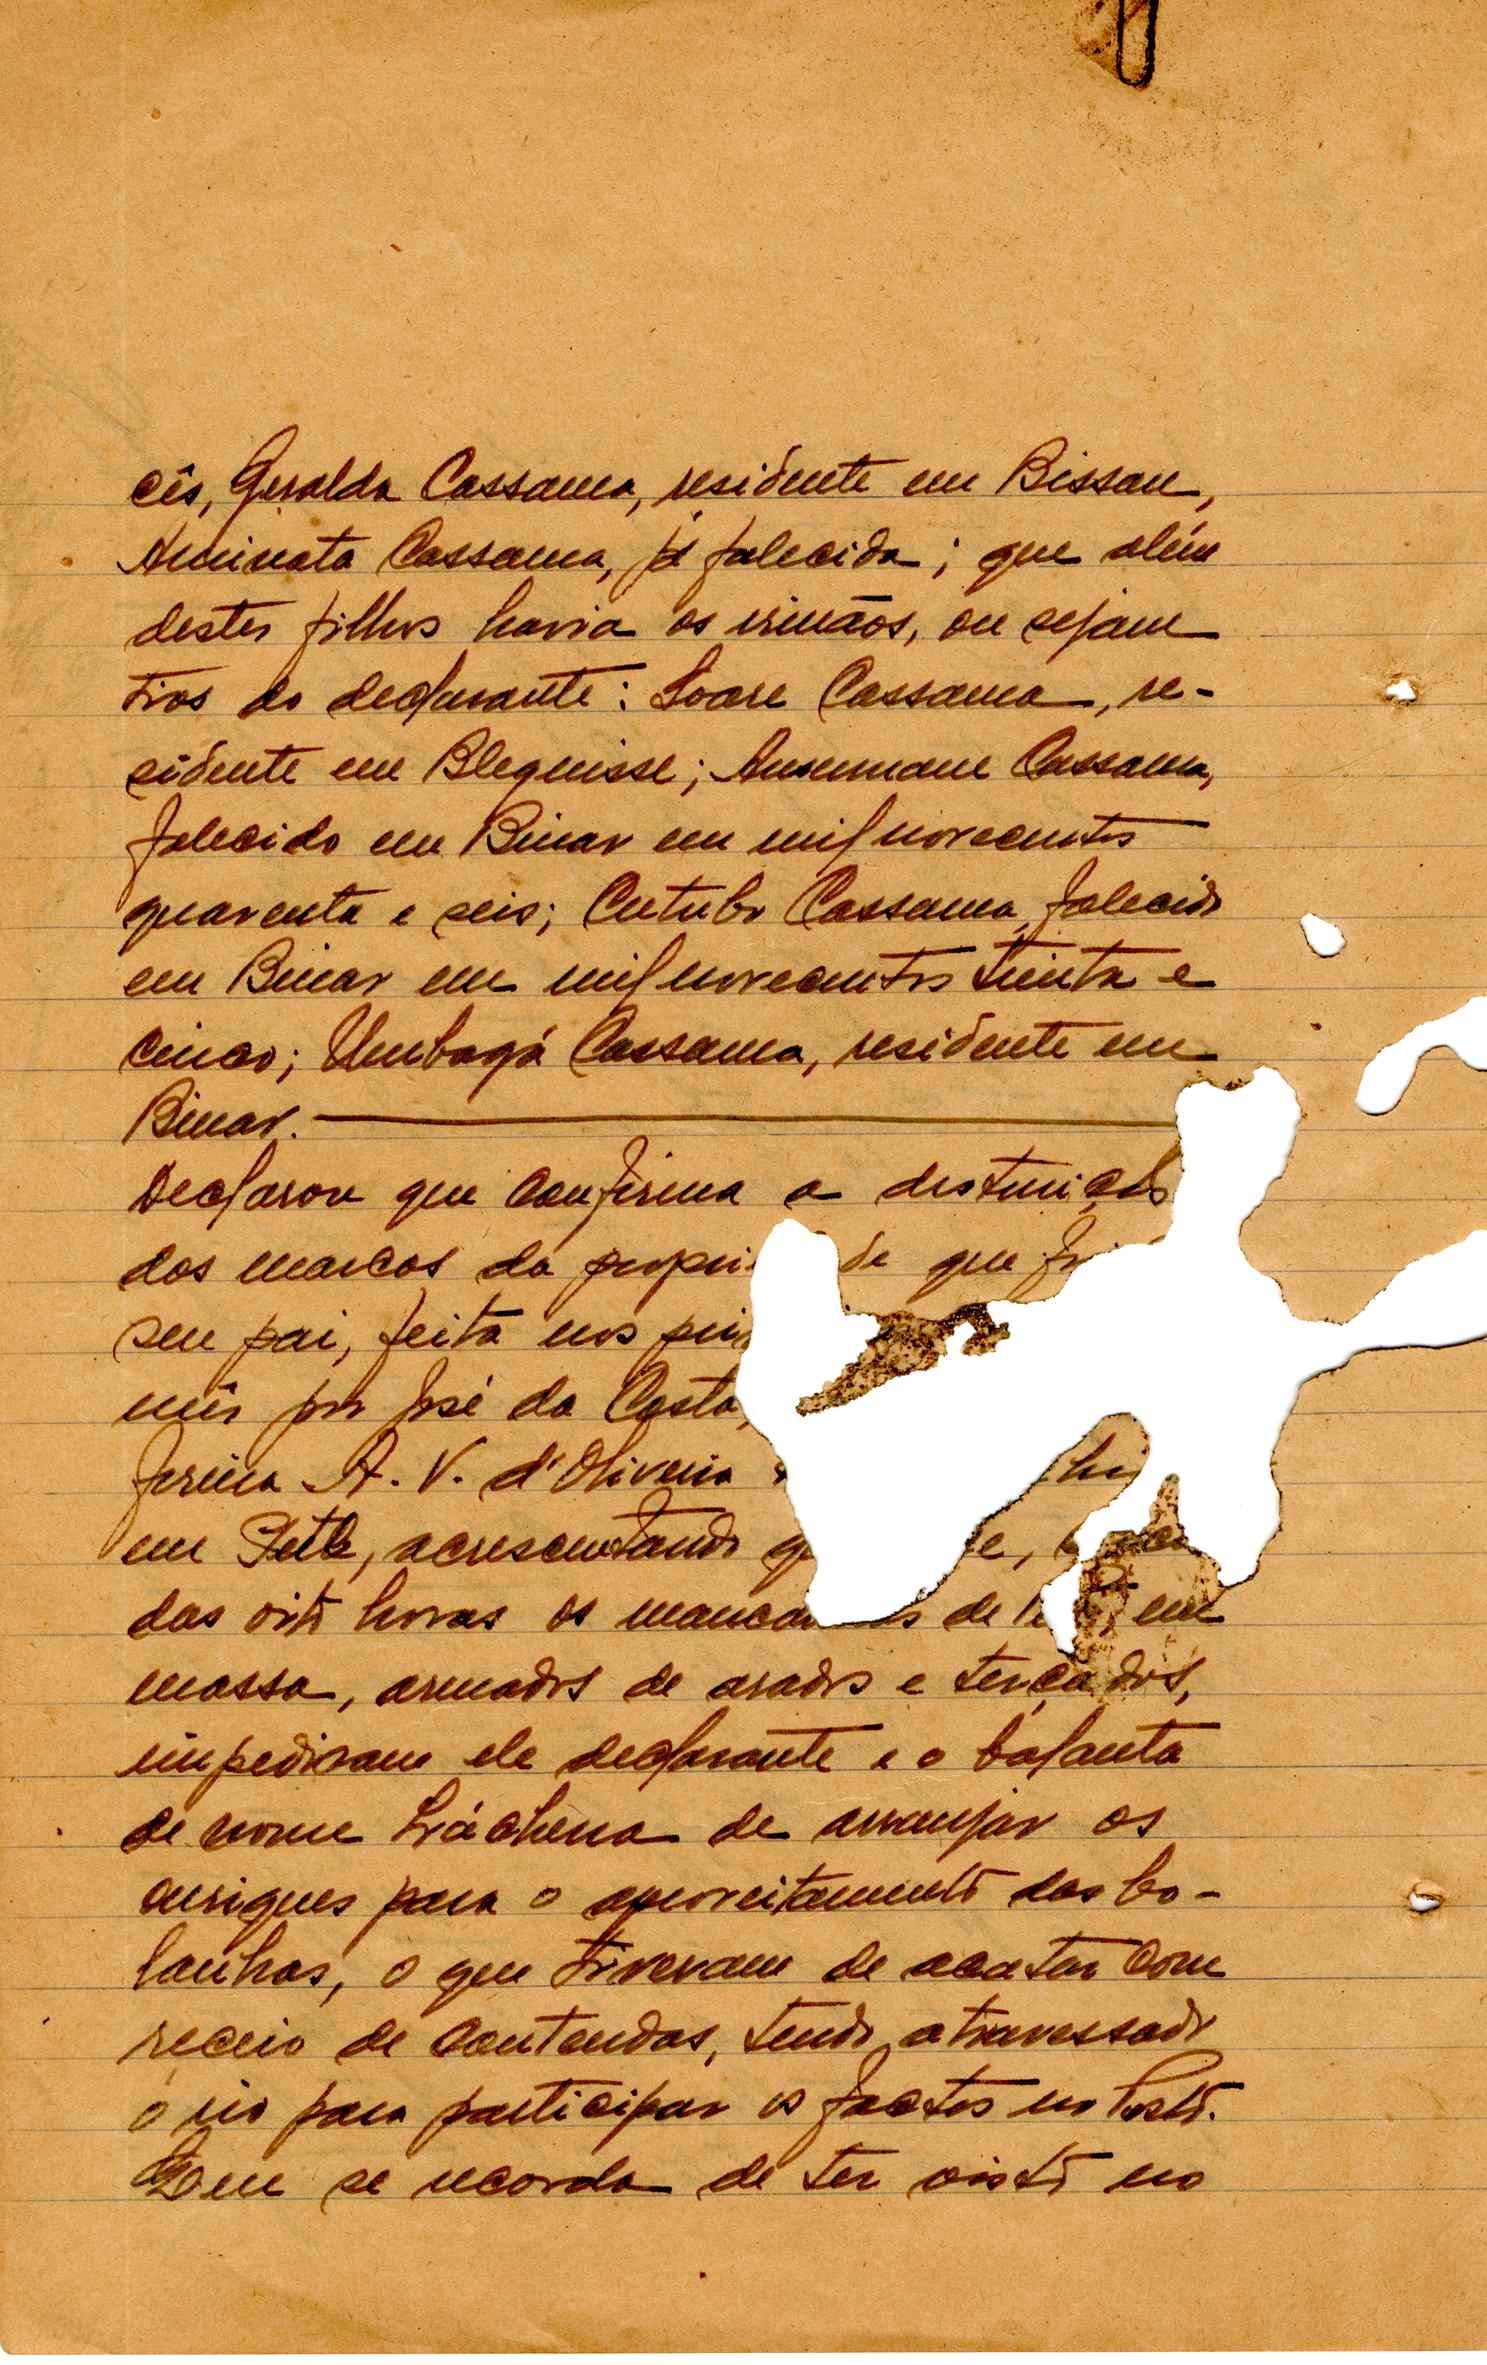 cês, Geralda Cassama, residente em Bissau,
Aminata Cassama, já falecida; que além
destes filhos havia os irmãos, ou sejam
tios do declarante: Soare Cassama, re-
sidente em Blequisse; Ansumane Cassama,
falecido em Binar em mil novecentos
quarenta e seis; Cutubo Cassama, falecido
em Binar em mil novecentos trinta e
cinco; Umbagá Cassama, residente em
Binar.
Declarou que confirma a destruição
dos marcos da propri de que foi
seu pai, feita nos
mês por José da Costa,
firma A. V. d'Oliveira
em , acrescentando e,
das oito horas os de em
massa, armados de arados e terçados,
impediram ele declarante e o balanta
de nome de arranjar os
ouriques para o aproveitamento das bo-
lanhas, o que tiveram de acatar com
receio de contendas, tendo atravessado
o rio para participar os factos no Posto.
Que se recorda de ter visto no